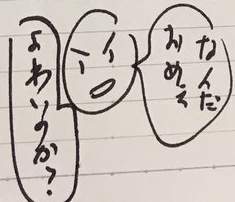 なんだ
おめぇ
よわいのか?